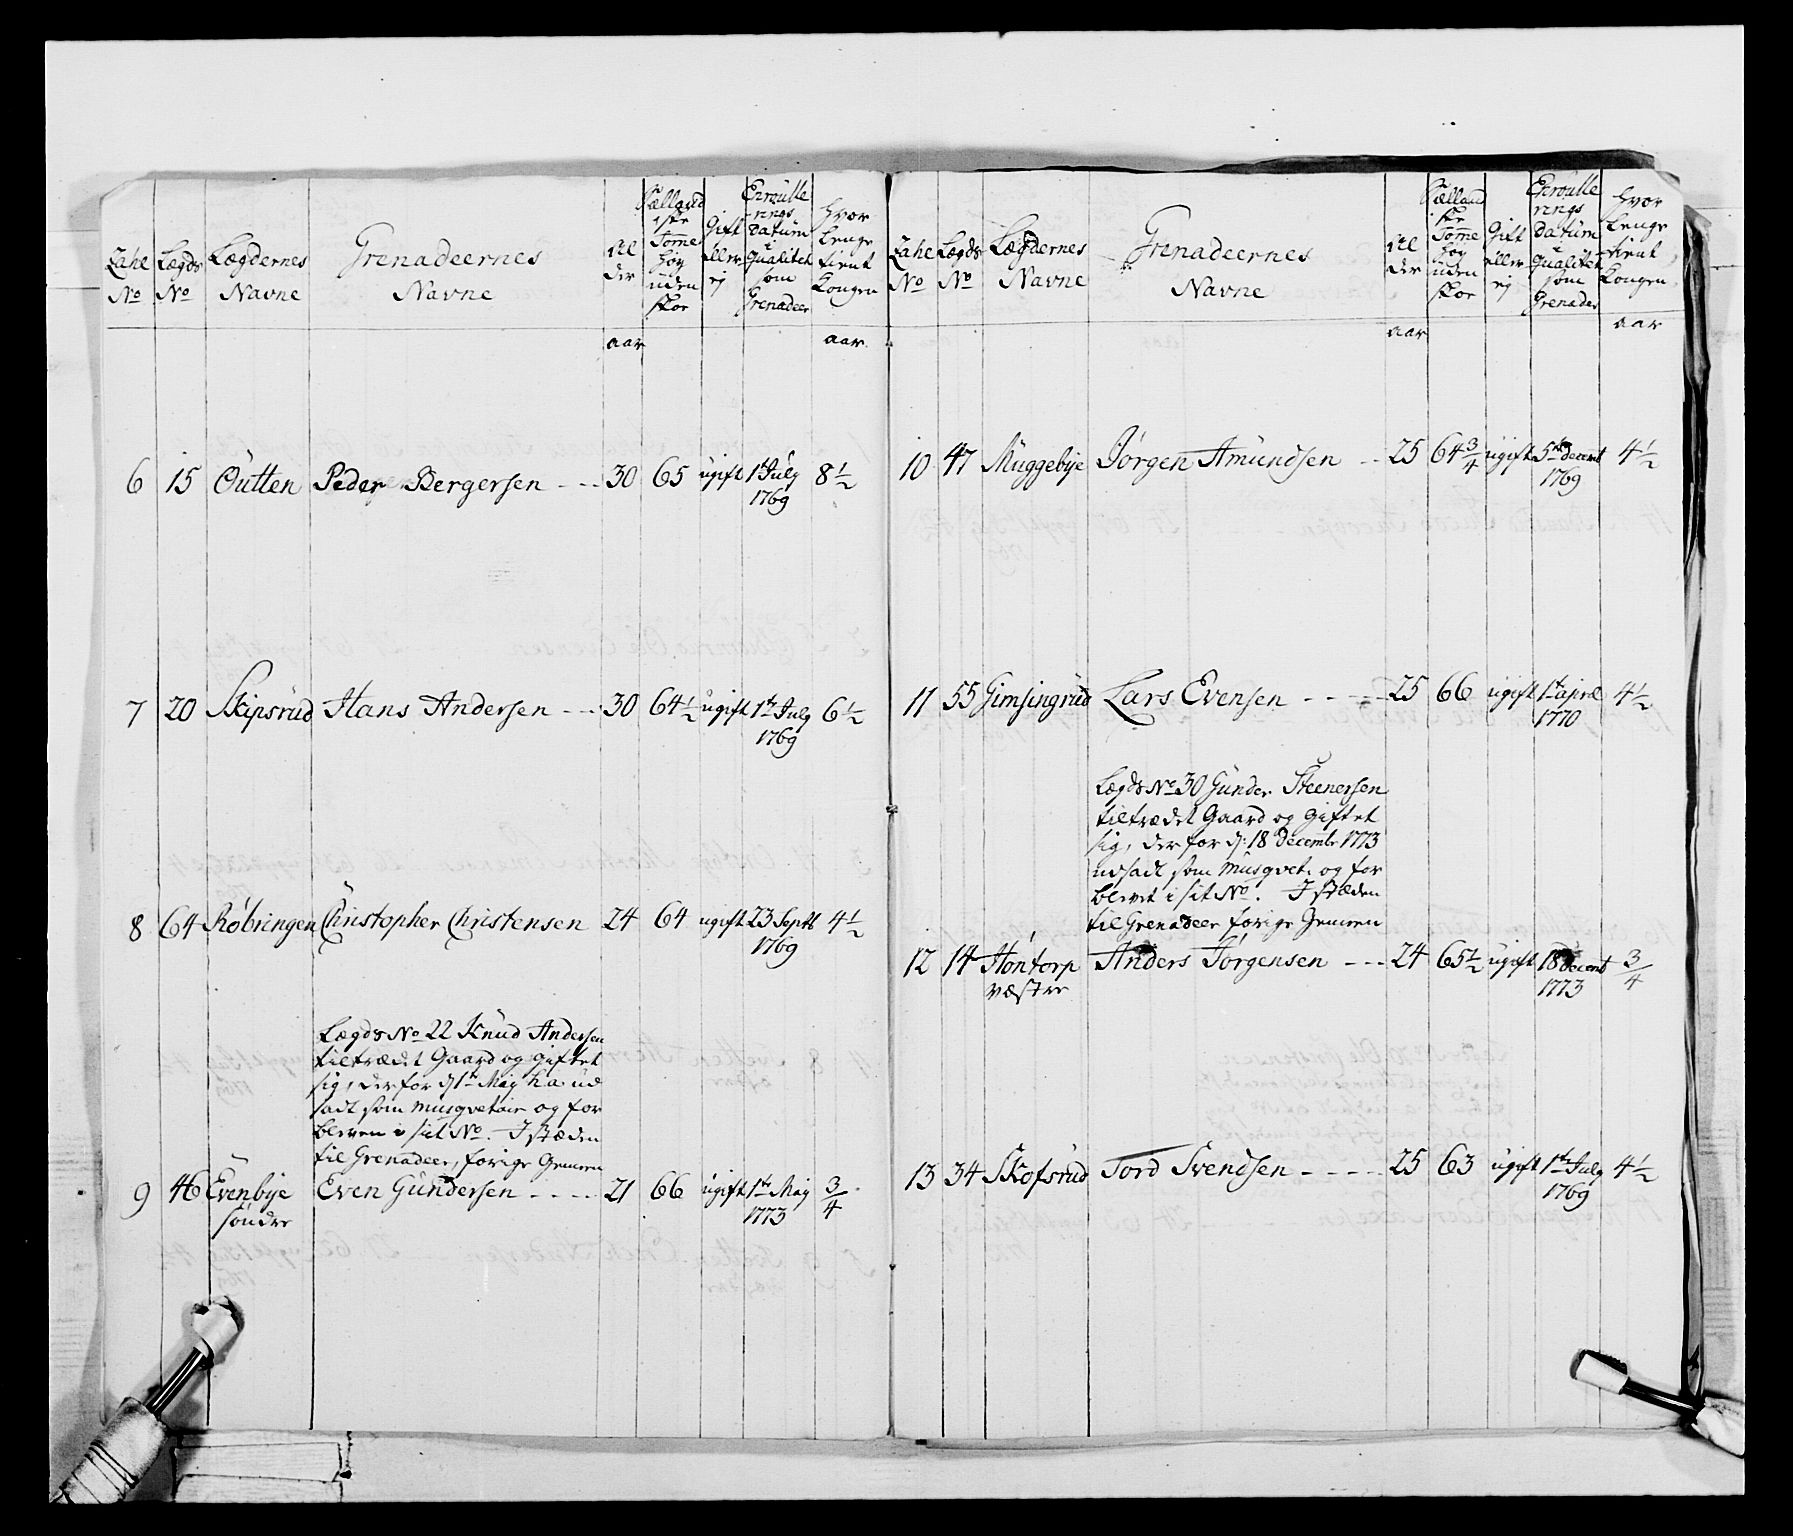 Zahl No | Lægds No | Lægdernes Navne | Grenadeernes Navne | Al der aar | Siælland iske Tomme høy uden skoe | Gift eller ej | Enroulle rings Datum i Qualitet som Grenadeer | Hvor lenge tient Kongen aar
6 | 15 | Outten | Peder Bergersen | 30 | 65 | ugift | 1te July 1769 | 8 1/2
7 | 20 | Skipsrud | Hans Andersen | 30 | 64 1/2 | ugift | 1te July 1769 | 6 1/2
8 | 64 | Röbringen | Christopher Christensen | 24 | 64 | ugift | 23 Septb 1769 | 4 1/2
Lægds No 22 Knud Andersen
tiltrædet Gaard og giftet
sig, derfor d 1te May h.a. ud
sadt som musqveteir og for
bleven i sit No. I stæden
til Grenadeer, forige Gemeen
9 | 46 | Evenbye söndre | Even Gundersen | 21 | 66 | ugift | 1te May 1773 | 3/4
Zahl No | Lægds No | Lægdernes Navne | Grenadeernes Navne | Al der aar | Siælland ske Tomme høy uden skoe | Gift eller ej | Enroulle rings Datum i Qualitet som Grenader | Hvor lenge tient Kongen aar
10 | 47 | Muggebye | Jörgen Amundsen | 25 | 64 3/4 | ugift | 5te decemb 1769 | 4 1/2
11 | 55 | Gimsingrud | Lars Evensen | 25 | 66 | ugift | 1te april 1770 | 4 1/2
Lægds No 30 Gunder Steenersen
tiltrædet Gaard og giftet
sig, derfor d: 18 decembr 1773
udsadt som musqvet. og for
blevet i sit No. I stæden
til Grenadeer forige Gemeen
12 | 14 | Höntorp væstre | Anders Jörgensen | 24 | 65 1/2 | ugift | 18 decemb 1773 | 3/4
13 | 34 | Skofsrud | Tord Svendsen | 25 | 63 | ugift | 1te July 1769 | 4 1/2